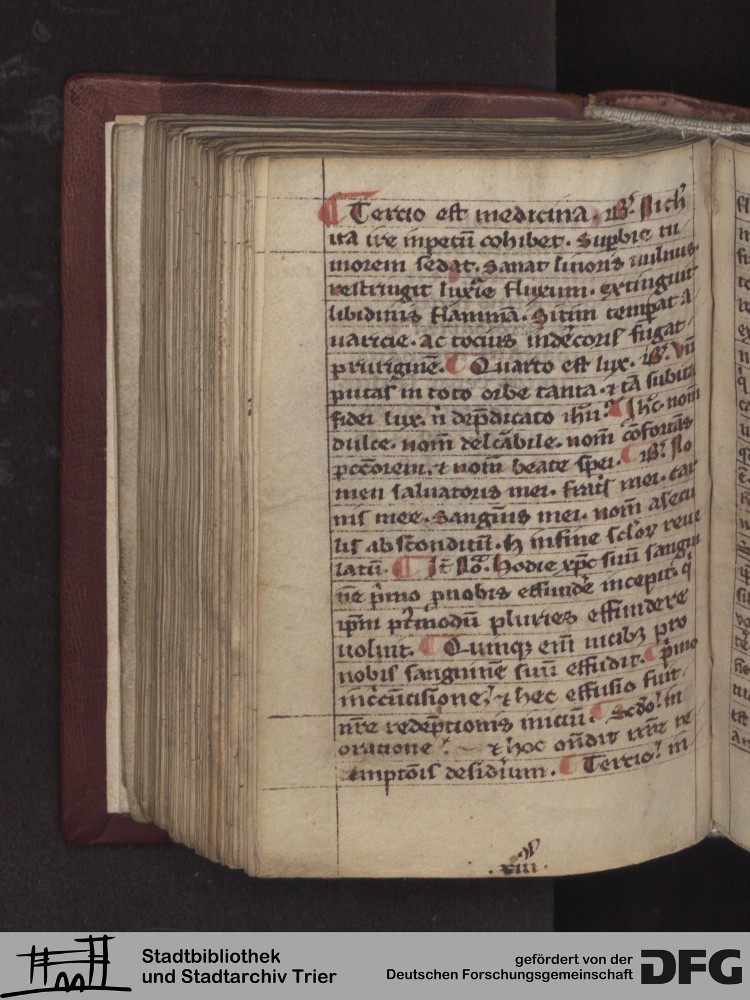 Tercio est medicina.
ita ire inpetu cohibet. Supbie tu
morem sedat. Sanat liuoris uulnus.
restringit luxie fluxum. extinguit
libidinis flammã. Sitim temperat a
uaricie. ac tocius indecoris fugat
pruriginẽ. Quarto est lux.
putas in toto orbe tanta. et tã subita
fidei lux. depdicato ihu.
dulce. nom delcãbile. nom cõfortãs
pctõrem. et nom beate spei.
men saluatoris mei. fratris mei. car
nis mee. sanguis mei. nom a secu
lis absconditũ. in fine sclor reue
latũ. Hodie xpc suũ sangui
nẽ primo pnobis effundẽ incepit. q
ipm ptmodũ pluries effundere
uoluit. Quinqz em uicibz pro
nobis sanguinẽ suũ effudit. primo
in circũcisione. et hec effusio fuit
nre redẽptionis iniciũ. Scdo in
oratione. et hoc ondit nre re
emptõis desidium. Tercio in
xiii
Stadtbibliothek
und Stadtarchiv Trier
gefördert von der
Deutschen Forschungsgemeinschaft
DFG